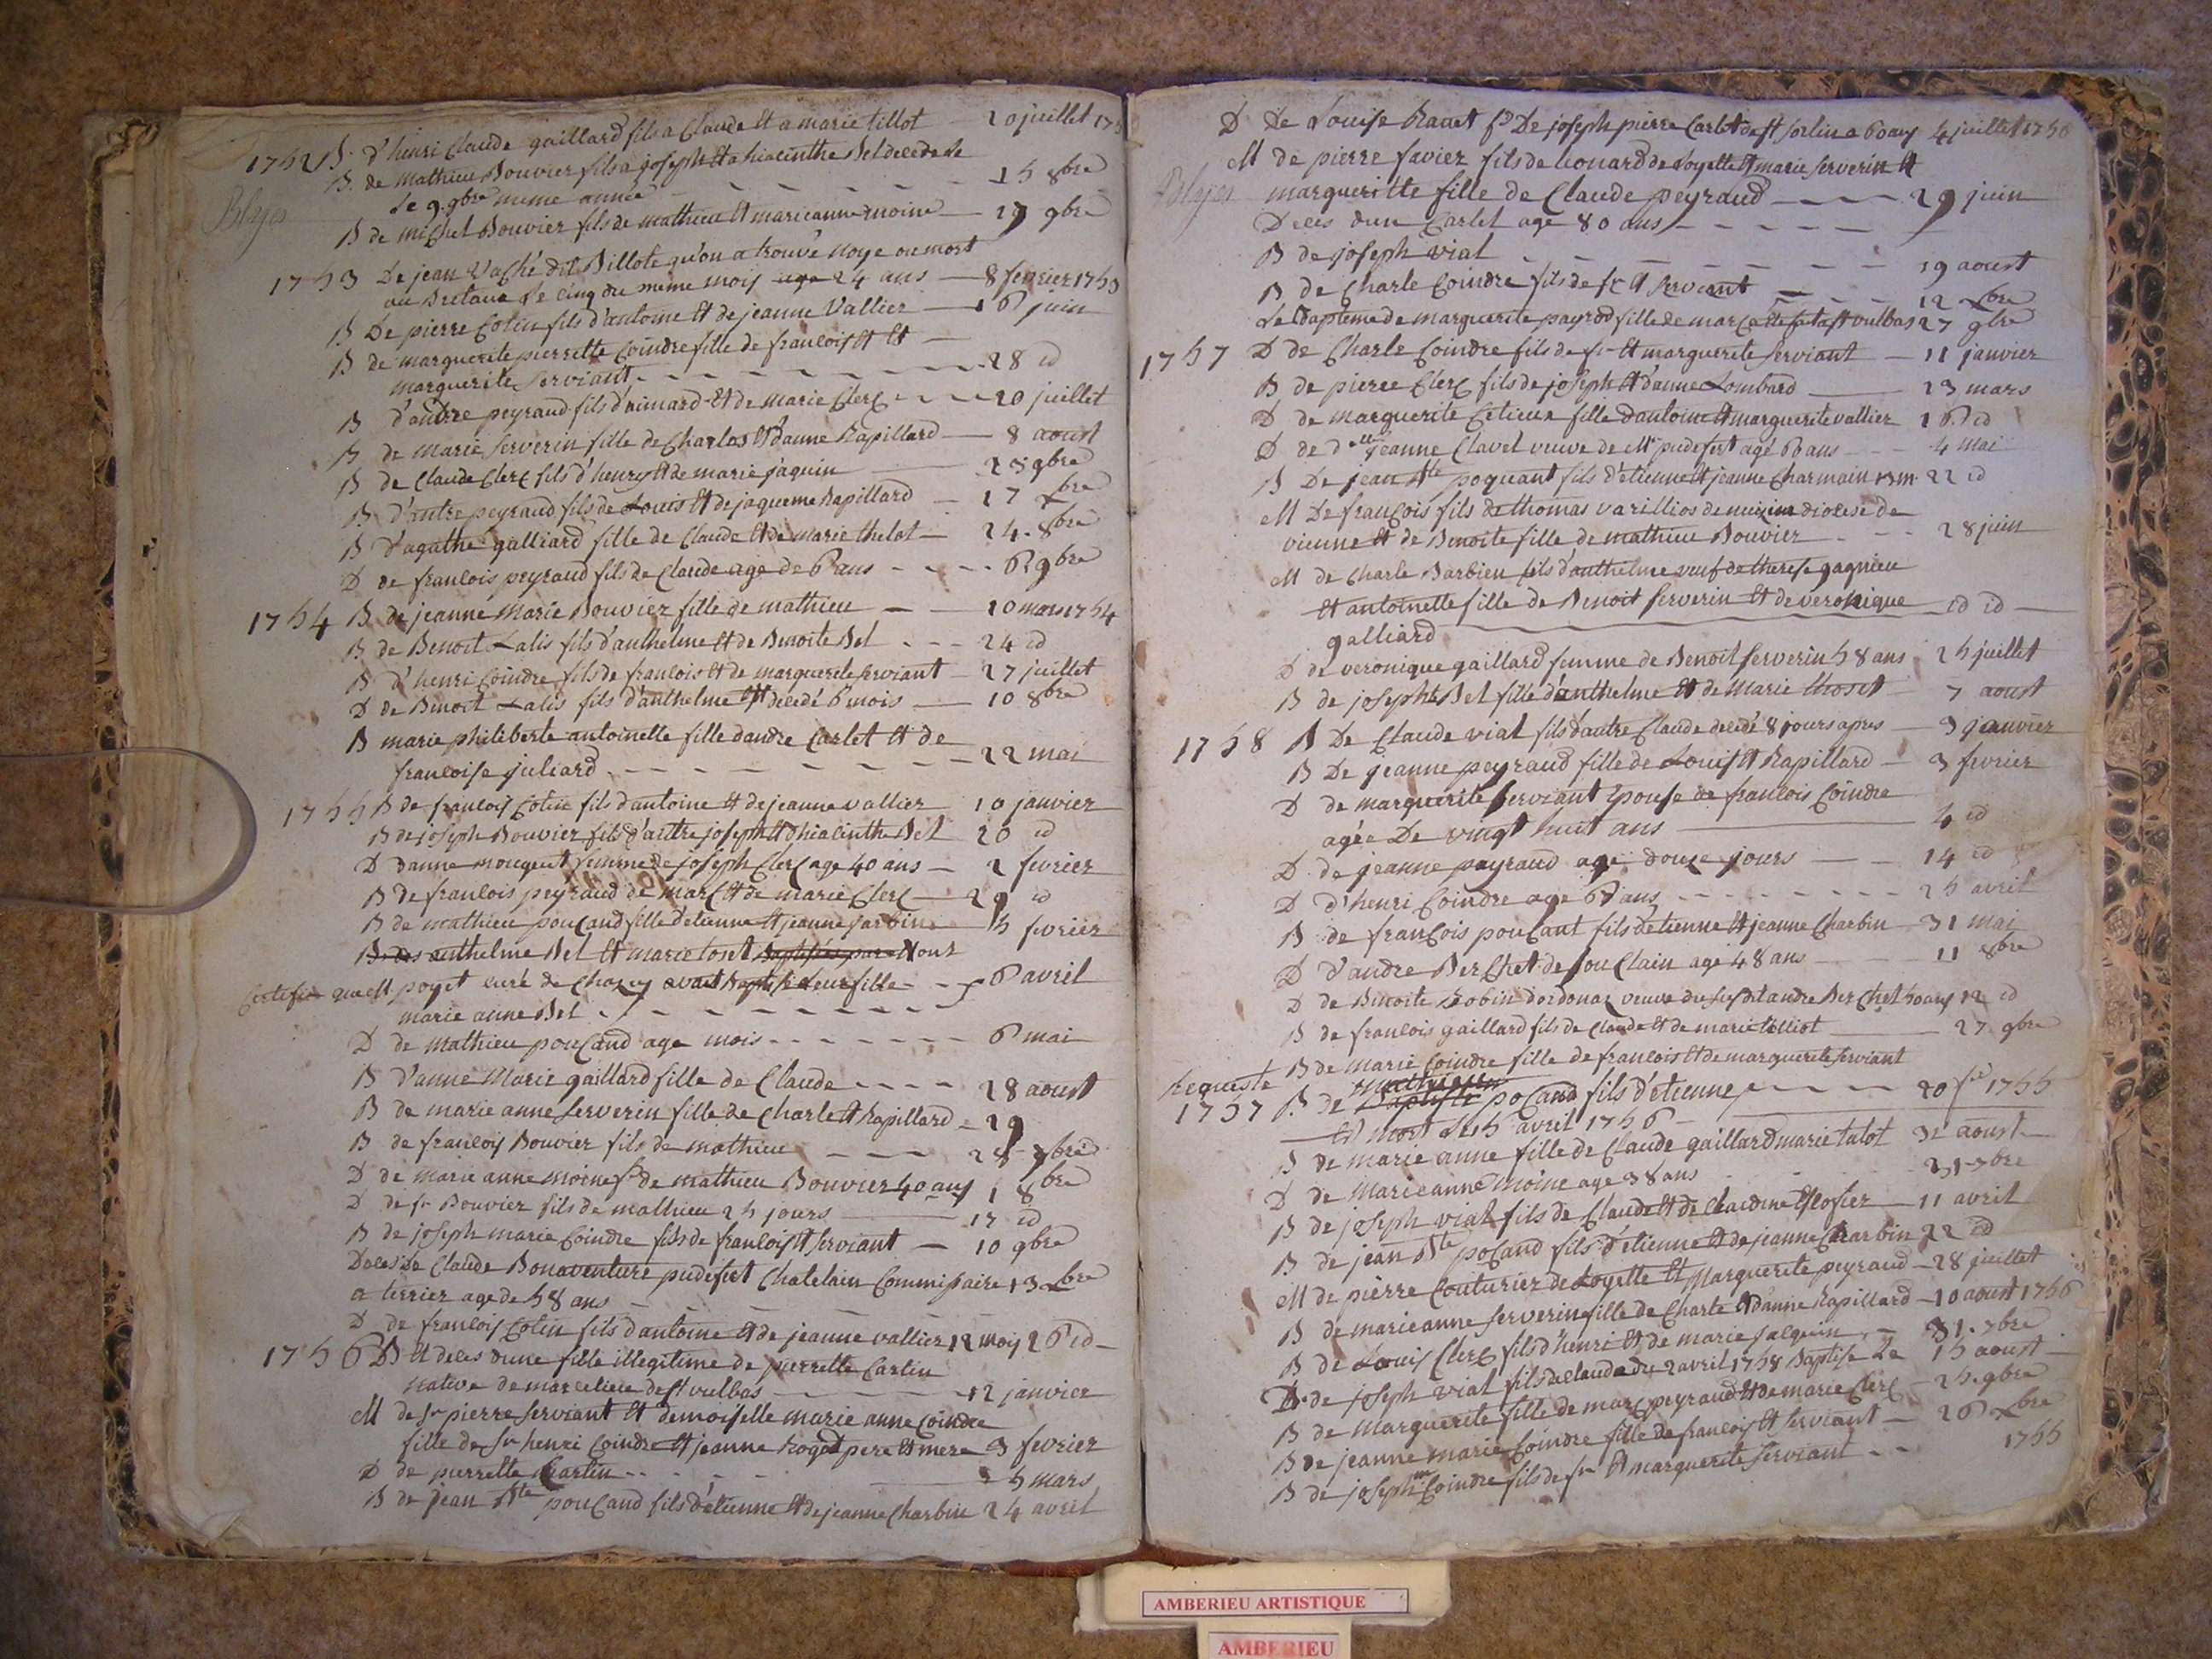 1752 B. d'henri Claude gaillard fils a Claude et a marie tillot 20 juillet 175
B. de mathieu Bouvier fils a joseph et a hiacinthe Bel decede le
Blyes le 9. gbre meme année 15 8bre
B de michel Bouvier fils de mathieu et marieanne moine 29 gbre
1753 De jean Vaché dit Billote qu'on a trouvé noye ou mort
au le cinq du meme mois age 24 ans 8 fevrier 1753
B De pierre Cotin fils d'antoine et de jeanne Vallier 16 juin
B de marguerite pierrette Coindre fille de francois et
marguerite serviant 28 id
B d'andre peyraud fils d' et de marie Clerc 20 juillet
B de marie serverin fille de Charles et d'anne Rapillard 8 aoust
B de Claude Clerc fils d'henry et de marie jaquin 25 gbre
B d'autre peyraud fils de Louis et de jaqueme Rapillard 17 Xbre
B d'agathe galliard fille de Claude et de marie thelot 24. 8bre
D de francois peyraud fils de Claude age de 6 ans 6 9bre
1754 B de jeanne marie Bouvier fille de mathieu 10 mars 1754
B de Benoit Lalis fils d'anthelme et de Benoite Bel 24 id
B d'henri Coindre fils de francois et de marguerite serviant 27 juillet
D de Benoit Lalis fils d'anthelme et decedé 6 mois 10 8bre
B marie philiberte antoinette fille dandre Carlet et de
francoise juliard 22 mai
1755 B de francois Cotin fils d'antoine et de jeanne vallier 10 janvier
B de joseph Bouvier fils d'autre joseph et d'hiacinthe Bel 20 id
D d'anne mongeut femme de joseph Clerc age 40 ans 2 fevrier
B de francois peyraud de marc et de marie Clerc 29 id
B de mathieu poucand fille detienne et jeanne 15 fevrier
B anthelme Bel et marie toset nous
Certifie que M poyet curé de Chazey avoit Baptisé leur fille 6 avril
marie anne Bel
D de mathieu poucand age mois 6 mai
B d'anne marie gaillard fille de Claude 28 aoust
B de marie anne serverin fille de Charle et Rapillard 29
B de francois Bouvier fils de mathieu 28 7bre
D de marie anne moine f de mathieu Bouvier 40 ans 1 8bre
D de fr Bouvier fils de mathieu 25 jours 17 id
B de joseph marie Coindre fils de francois et serviant 10 gbre
Deces de Claude Bonaventure pudefert Chatelain Commissaire 13 Xbre
a terrier age de 58 ans
D de francois Cotin fils d'antoine et de jeanne vallier 12 mois 26 id
1756 B et deces dune fille illegitime de pierrette Cartin
native de marcelieu de st vulbas 12 janvier
M de sr pierre serviant et demoiselle marie anne Coindre
fille de sr henri Coindre et jeanne pere et mere 3 fevrier
D de pierrette Cartin 5 mars
B de jean Bte poucand fils d'etienne et de jeanne Charbin 24 avril
D De Louise Ravet fe De joseph pierre Carlet de st sorlin a 60 ans 4 juillet 1756
M de pierre favier fils de leonard de Loyette et marie serverin et
Blyes margueritte fille de Claude peyraud 29 juin
Deces dun Carlet age 80 ans
B de joseph vial 19 aoust
B de Charle Coindre fils de fr et serviant 12 Xbre
Le Bapteme de marguerite payrod fille de marc st vulbas 27 gbre
1757 D de Charle Coindre fils de fr et marguerite serviant 11 janvier
B de pierre Clerc fils de joseph et d'anne Lombard 23 mars
D de marguerite fille dantoine et marguerite vallier 16 id
D de d'elle jeanne Clavel veuve de Mr pudefert agé 66 ans 4 mai
B De jean Bte poquant fils d'etienne et jeanne Charmain 22 id
M De francois fils de thomas varillios de diocese de
vienne et de Benoite fille de mathieu Bouvier 28 juin
M de Charle Barbieu fils d'anthelme veuf de therese gagnieu
et antoinette fille de Benoit serverin et de veronique id id
galliard
D de veronique gaillard femme de Benoit serverin 58 ans 25 juillet
B de joseph Bel fille d'anthelme et de marie thoset 7 aoust
1758 B De Claude vial fils d'autre Claude decedé 8 jours apres 9 janvier
B De jeanne peyraud fille de Louis et Rapillard 3 fevrier
D de marguerite serviant epouse de francois Coindre
agée De vingt huit ans 4 id
D de jeanne payraud age douze jours 14 id
D d'henri Coindre age 6 ans 25 avril
B de francois poucant fils detienne et jeanne Charbin 31 mai
D d'andre Berchet de souclain agé 48 ans 11 8bre
D de Benoite Robin dordonas veuve du susdit andre Berchet 50 ans 12 id
B de francois gaillard fils de Claude et de marie tilliot 27 gbre
B de marie Coindre fille de francois et de marguerite serviant
Requeste
1757 B. de mathieu Baptiste pocand fils d'etienne 20 fr 1755
est mort le 5 avril 1756
B de marie anne fille de Claude gaillard marie talot 31 aoust
D de marieanne moine age 38 ans 31 7bre
B de joseph vial fils de Claude et de Claudine 11 avril
B de jean Bte pocand fils d'etienne et de jeanne Charbin 22 id
M de pierre Couturier de Loyette et marguerite peyraud 28 juillet
B de marieanne serverin fille de Charle et d'anne Rapillard 10 aoust 1756
B de Louis Clerc fils d'henri et de marie jacquin 31. 7bre
D. de joseph vial fils de claude du 2 avril 1758 Baptise le 15 aoust
B de marguerite fille de marc peyraud et de marie Clerc 25. gbre
B de jeanne marie Coindre fille de francois et serviant 26 Xbre
B de joseph m Coindre fils de fr et marguerite serviant 1755
AMBERIEU ARTISTIQUE
AMBERIEU